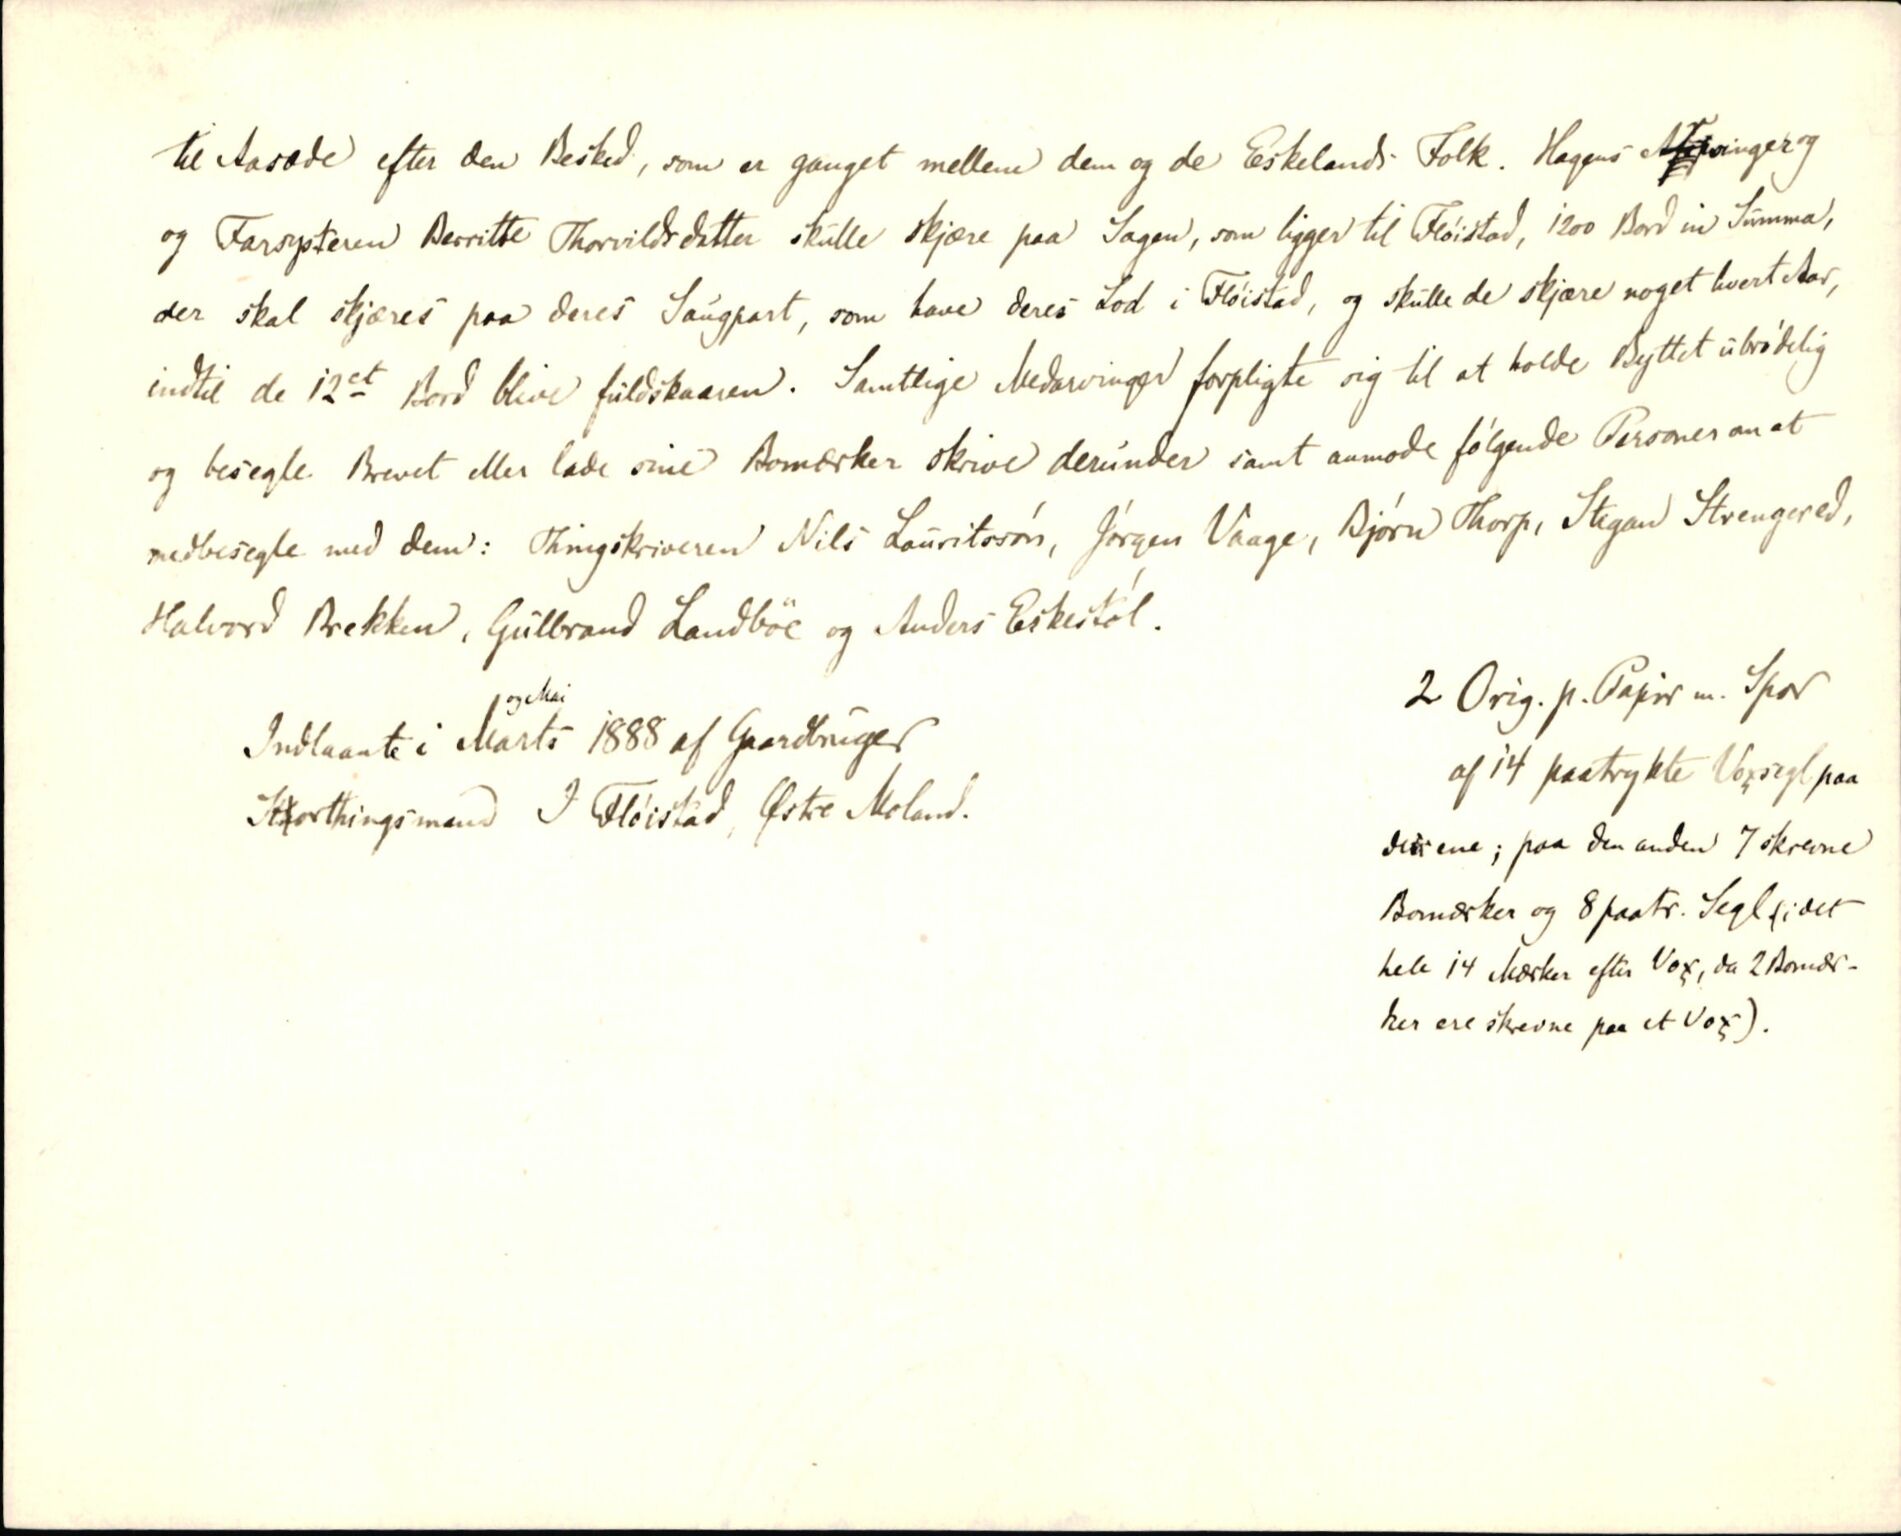 til Aasæde efter den Besked, som er ganget mellem dem og de Eskelands Folk. Hagens Arvinger og
og Farsysteren Berritte Thorvildsdatter skulle skjære paa Sagen, som ligger til Fløistad, 1200 Bord in Summa,
der skal skjæres paa deres Saugpart, som have deres Lod i Fløistad, og skulle de skjære noget hvert Aar,
indtil de 12ct Bord blive fuldskaaren. Samtlige Medarvinger forpligte sig til at holde Byttet ubrødelig
og besegle Brevet eller lade sine Bomærker skrive derunder samt anmode følgende Personer om at
medbesegle med dem: Thingskriveren Nils Lauritssøn, Jørgen Vaage, Bjørn Thorp, Stegan Strengered,
Halvord Brekken, Gulbrand Landböe og Anders Eskestøl.
Indlaante i Marts og Mai 1888 af Gaardbruger
Storthingsmand I Fløistad, Østre Moland.
2 Orig. p. Papir m. Spor
af 14 paatrykte Voxsegl paa
det ene; paa den anden 7 skrevne
Bomærker og 8 paatr. Segl (i det
hele 14 Mærker efter Vox, da 2 Bomær-
ker ere skrevne paa et Vox).